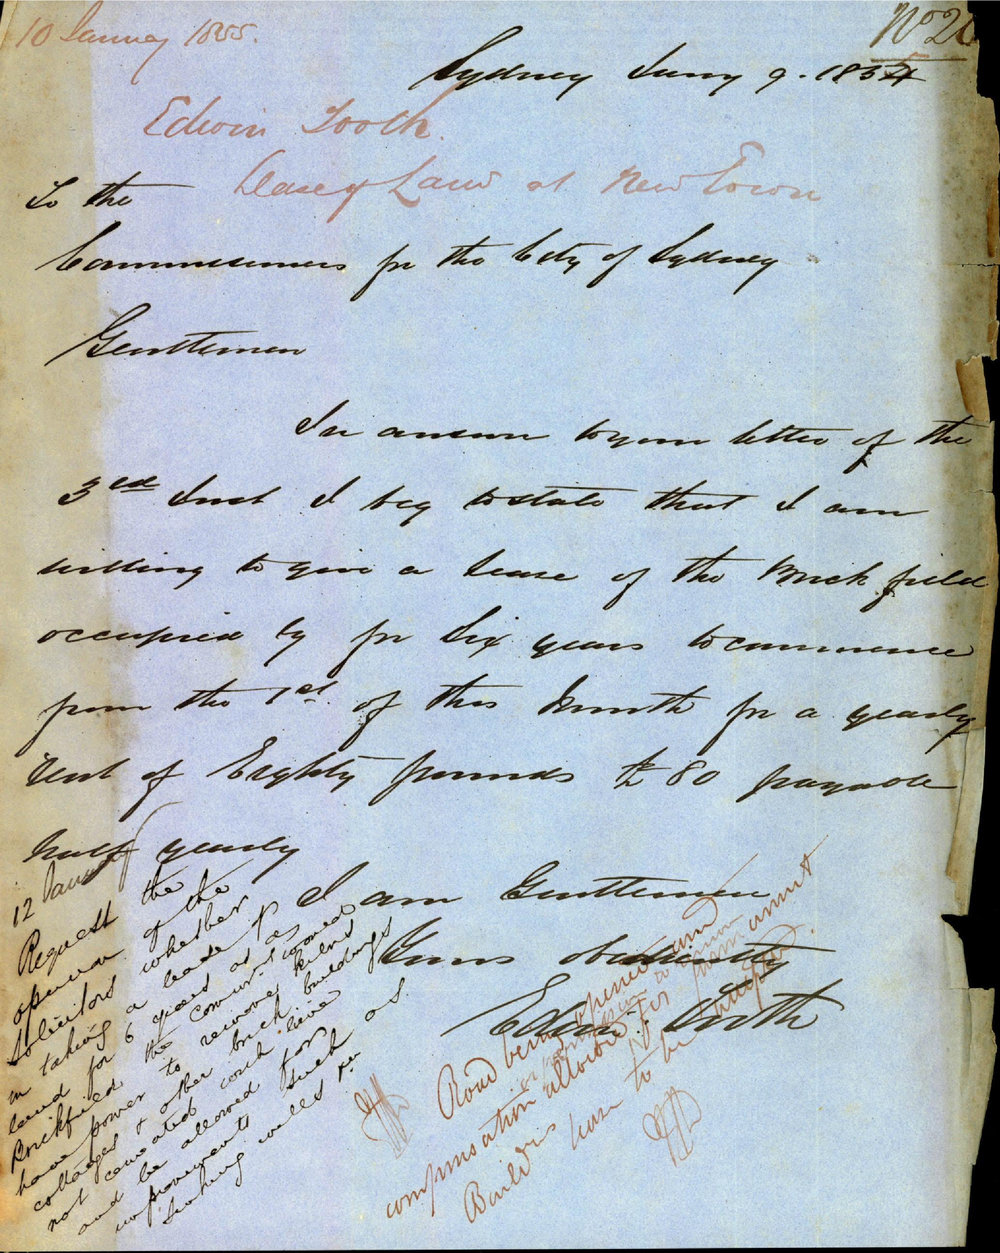 10 January 1855.
No 2
Sydney Jany 9. 1854
5
Edwin Tooth
Lease of Land at New Town
To the
Commissioners for the City of Sydney
Gentlemen
In answer to your letter of the
3rd Inst I beg to state that I am
willing to give a lease of the Brick field
occupied by for Six years to commence
from the 1st of this Month for a yearly
Rent of Eighty pounds £80 payable
half yearly
I am Gentlemen
Yours obediently
Edwin Tooth
12 Jany
Request the
opinion of the
Solicitors whether
in taking a lease of
land for 6 years as a
Brickfield the commissioners
have power to remove kilns
cottages & other brick buildings
not cemented could
and be allowed for
improvements such as
sinking wells &c
Road being opened and
compensation allowed for
Builders have to be